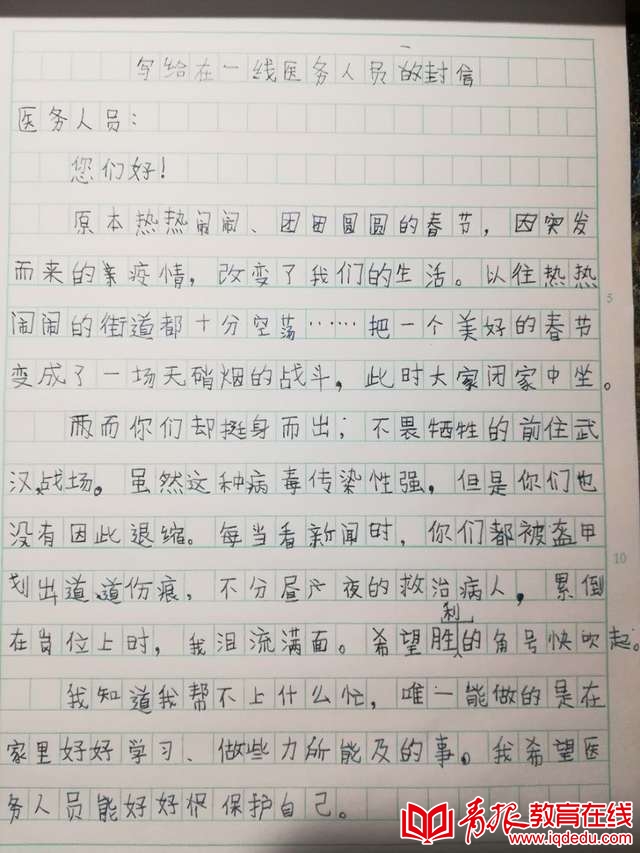 写给在一线医务人员的一封信
医务人员：
您们好！
原本热热闹闹、团团圆圆的春节，因突发
而来的疫情，改变了我们的生活。以往热热
闹闹的街道都十分空荡……把一个美好的春节
变成了一场无硝烟的战斗，此时大家闭家中坐。
而你们却挺身而出，不畏牺牲的前往武
汉战场。虽然这种病毒传染性强，但是你们也
没有因此退缩。每当看新闻时，你们都被盔甲
划出道道伤痕，不分昼夜的救治病人，累倒
在岗位上时，我泪流满面。希望胜利的角号快吹起。
我知道我帮不上什么忙，唯一能做的是在
家里好好学习、做些力所能及的事。我希望医
务人员能好好保护自己。
5
10
青报教育在线
www.iqdedu.com